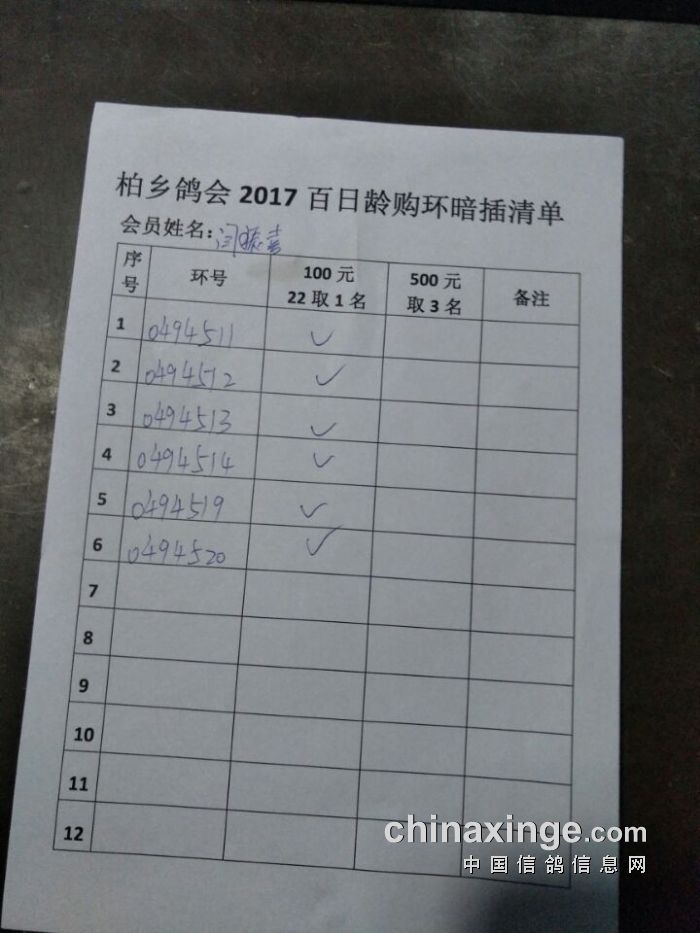 柏乡鸽会2017百日龄购环暗插清单
会员姓名：闫振
序号 环号 100元 22取1名 500元 取3名 备注
1 0494511 ✓
2 0494512 ✓
3 0494513 ✓
4 0494514 ✓
5 0494519 ✓
6 0494520 ✓
7
8
9
10
11
12
chinaxinge.com
中国信鸽信息网